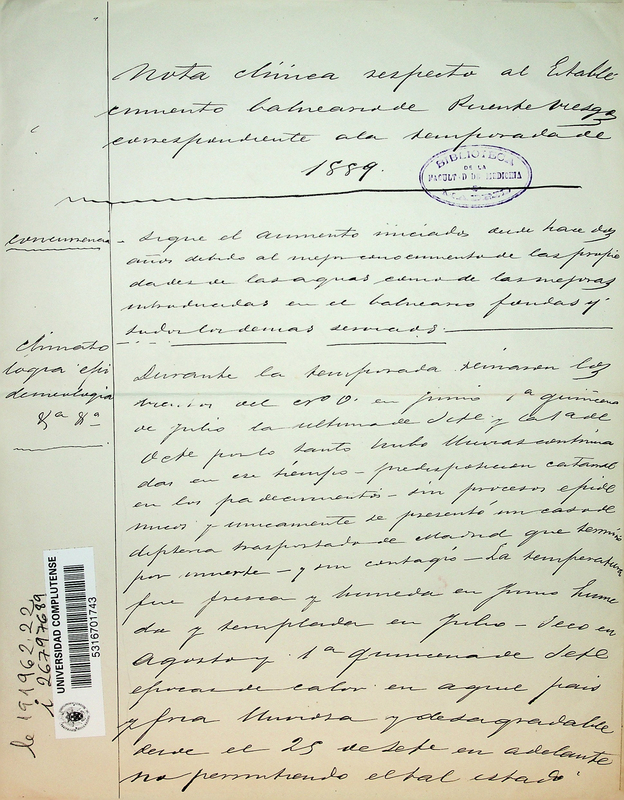 Nota clínica respecto al Estable
cimiento balneario de Puente Viesgo
correspondiente a la temporada de
1889.
BIBLIOTECA
DE LA
FACULTAD DE MEDICINA
concurrencia - Sigue el aumento iniciado desde hace dos
años debido al mejor conocimiento de las propie
dades de las aguas como de las mejoras
introducidas en el balneario fondas y
todos los demas servicios.
Climato
logia epi
demiologia
&a &a
Durante la temporada reinaron los
vientos del O. en junio 1a quincena
de julio la ultima de Sete y casi de
Octe por lo tanto hubo lluvias continua
das en ese tiempo - predisposicion catarral
en los padecimientos - sin procesos epide
micos y unicamente se presentó un caso de
difteria trasportado de Madrid que terminó
por muerte - y sin contagio - La temperatura
fue fresca y humeda en Junio hume
da y templada en Julio - Seco en
Agosto y 1a quincena de Sete
epocas de calor en aquel pais
y fria lluviosa y desagradable
desde el 25 de Sete en adelante
no permitiendo el tal estado
le 191962.22
i 26797689
UNIVERSIDAD COMPLUTENSE
5316701743